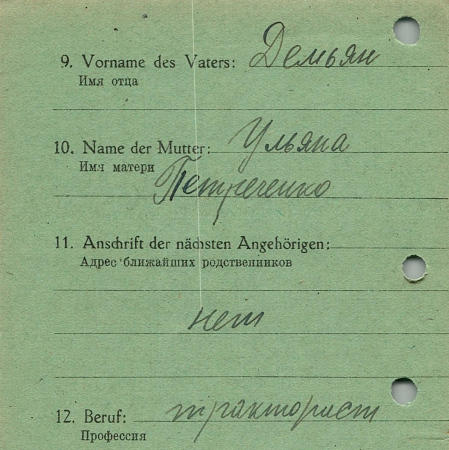 9. Vorname des Vaters: Демьян
Имя отца
10. Name der Mutter: Ульяна
Имя матери
Петреченко
11. Anschrift der nächsten Angehörigen:
Адрес ближайших родственников
нет
12. Beruf: тракторист
Профессия